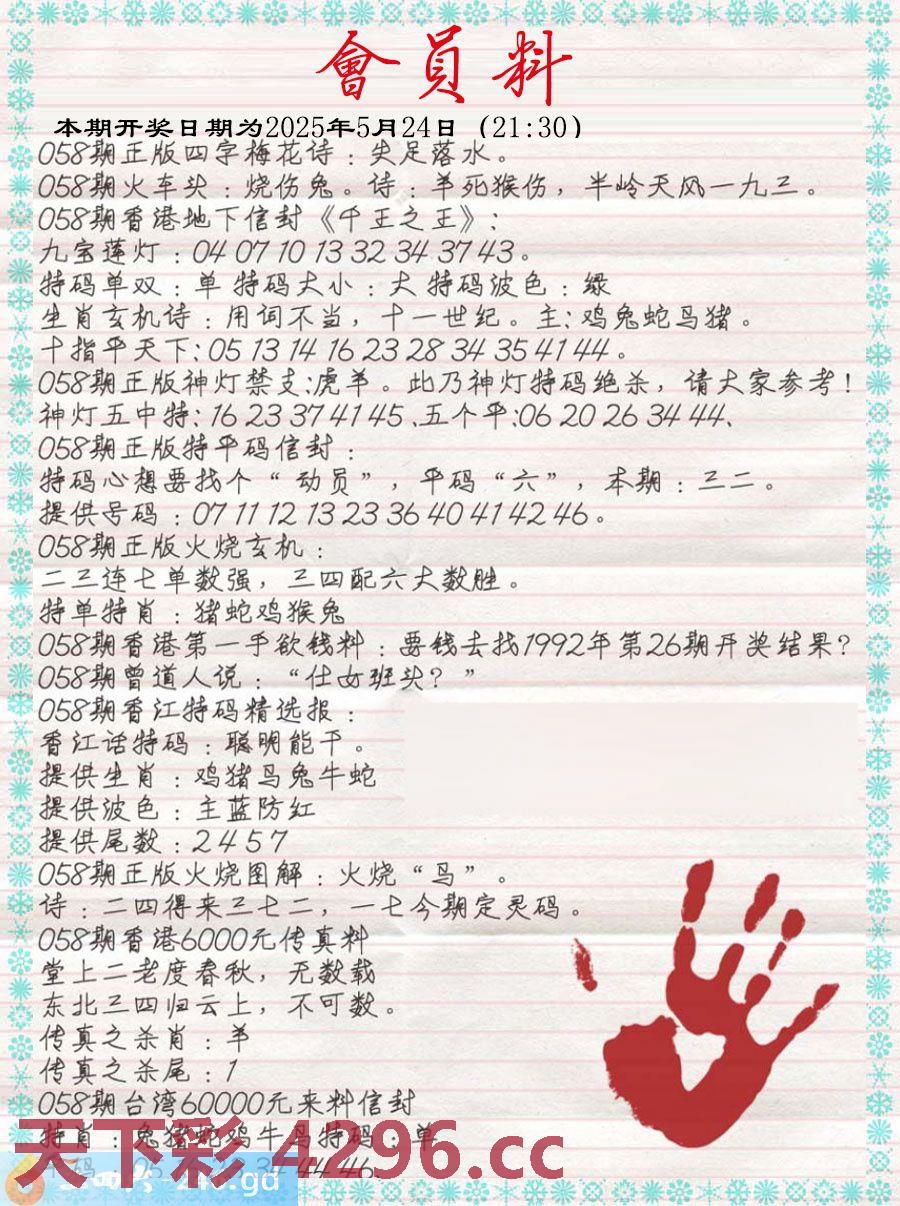 會員料
本期开奖日期为2025年5月24日（21:30）
058期正版四字梅花诗：失足落水。
058期火车头：烧伤兔。诗：羊死猴伤，半岭天风一九三。
058期香港地下信封《千王之王》：
九宝莲灯：04 07 10 13 32 34 37 43。
特码单双：单 特码大小：大 特码波色：绿
生肖玄机诗：用词不当，十一世纪。主：鸡兔蛇马猪。
十指平天下：05 13 14 16 23 28 34 35 41 44。
058期正版神灯禁支：虎羊。此乃神灯特码绝杀，请大家参考！
神灯五中特：16 23 37 41 45、五个平：06 20 26 34 44、
058期正版特平码信封：
特码心想要找个“动员”，平码“六”，本期：三二。
提供号码：07 11 12 13 23 36 40 41 42 46。
058期正版火烧玄机：
二三连七单数强，三四配六大数胜。
特单特肖：猪蛇鸡猴兔
058期香港第一手欲钱料：要钱去找1992年第26期开奖结果？
058期曾道人说：“仕女班头？”
058期香江特码精选报：
香江话特码：聪明能干。
提供生肖：鸡猪马兔牛蛇
提供波色：主蓝防红
提供尾数：2 4 5 7
058期正版火烧图解：火烧“鸟”。
诗：二四得来三七二，一七今期定灵码。
058期香港6000元传真料
堂上二老度春秋，无数载
东北三四归云上，不可数。
传真之杀肖：羊
传真之杀尾：1
058期台湾60000元来料信封
特肖：兔猪蛇鸡牛马特码：单
天下彩.4296.cc
44 46、